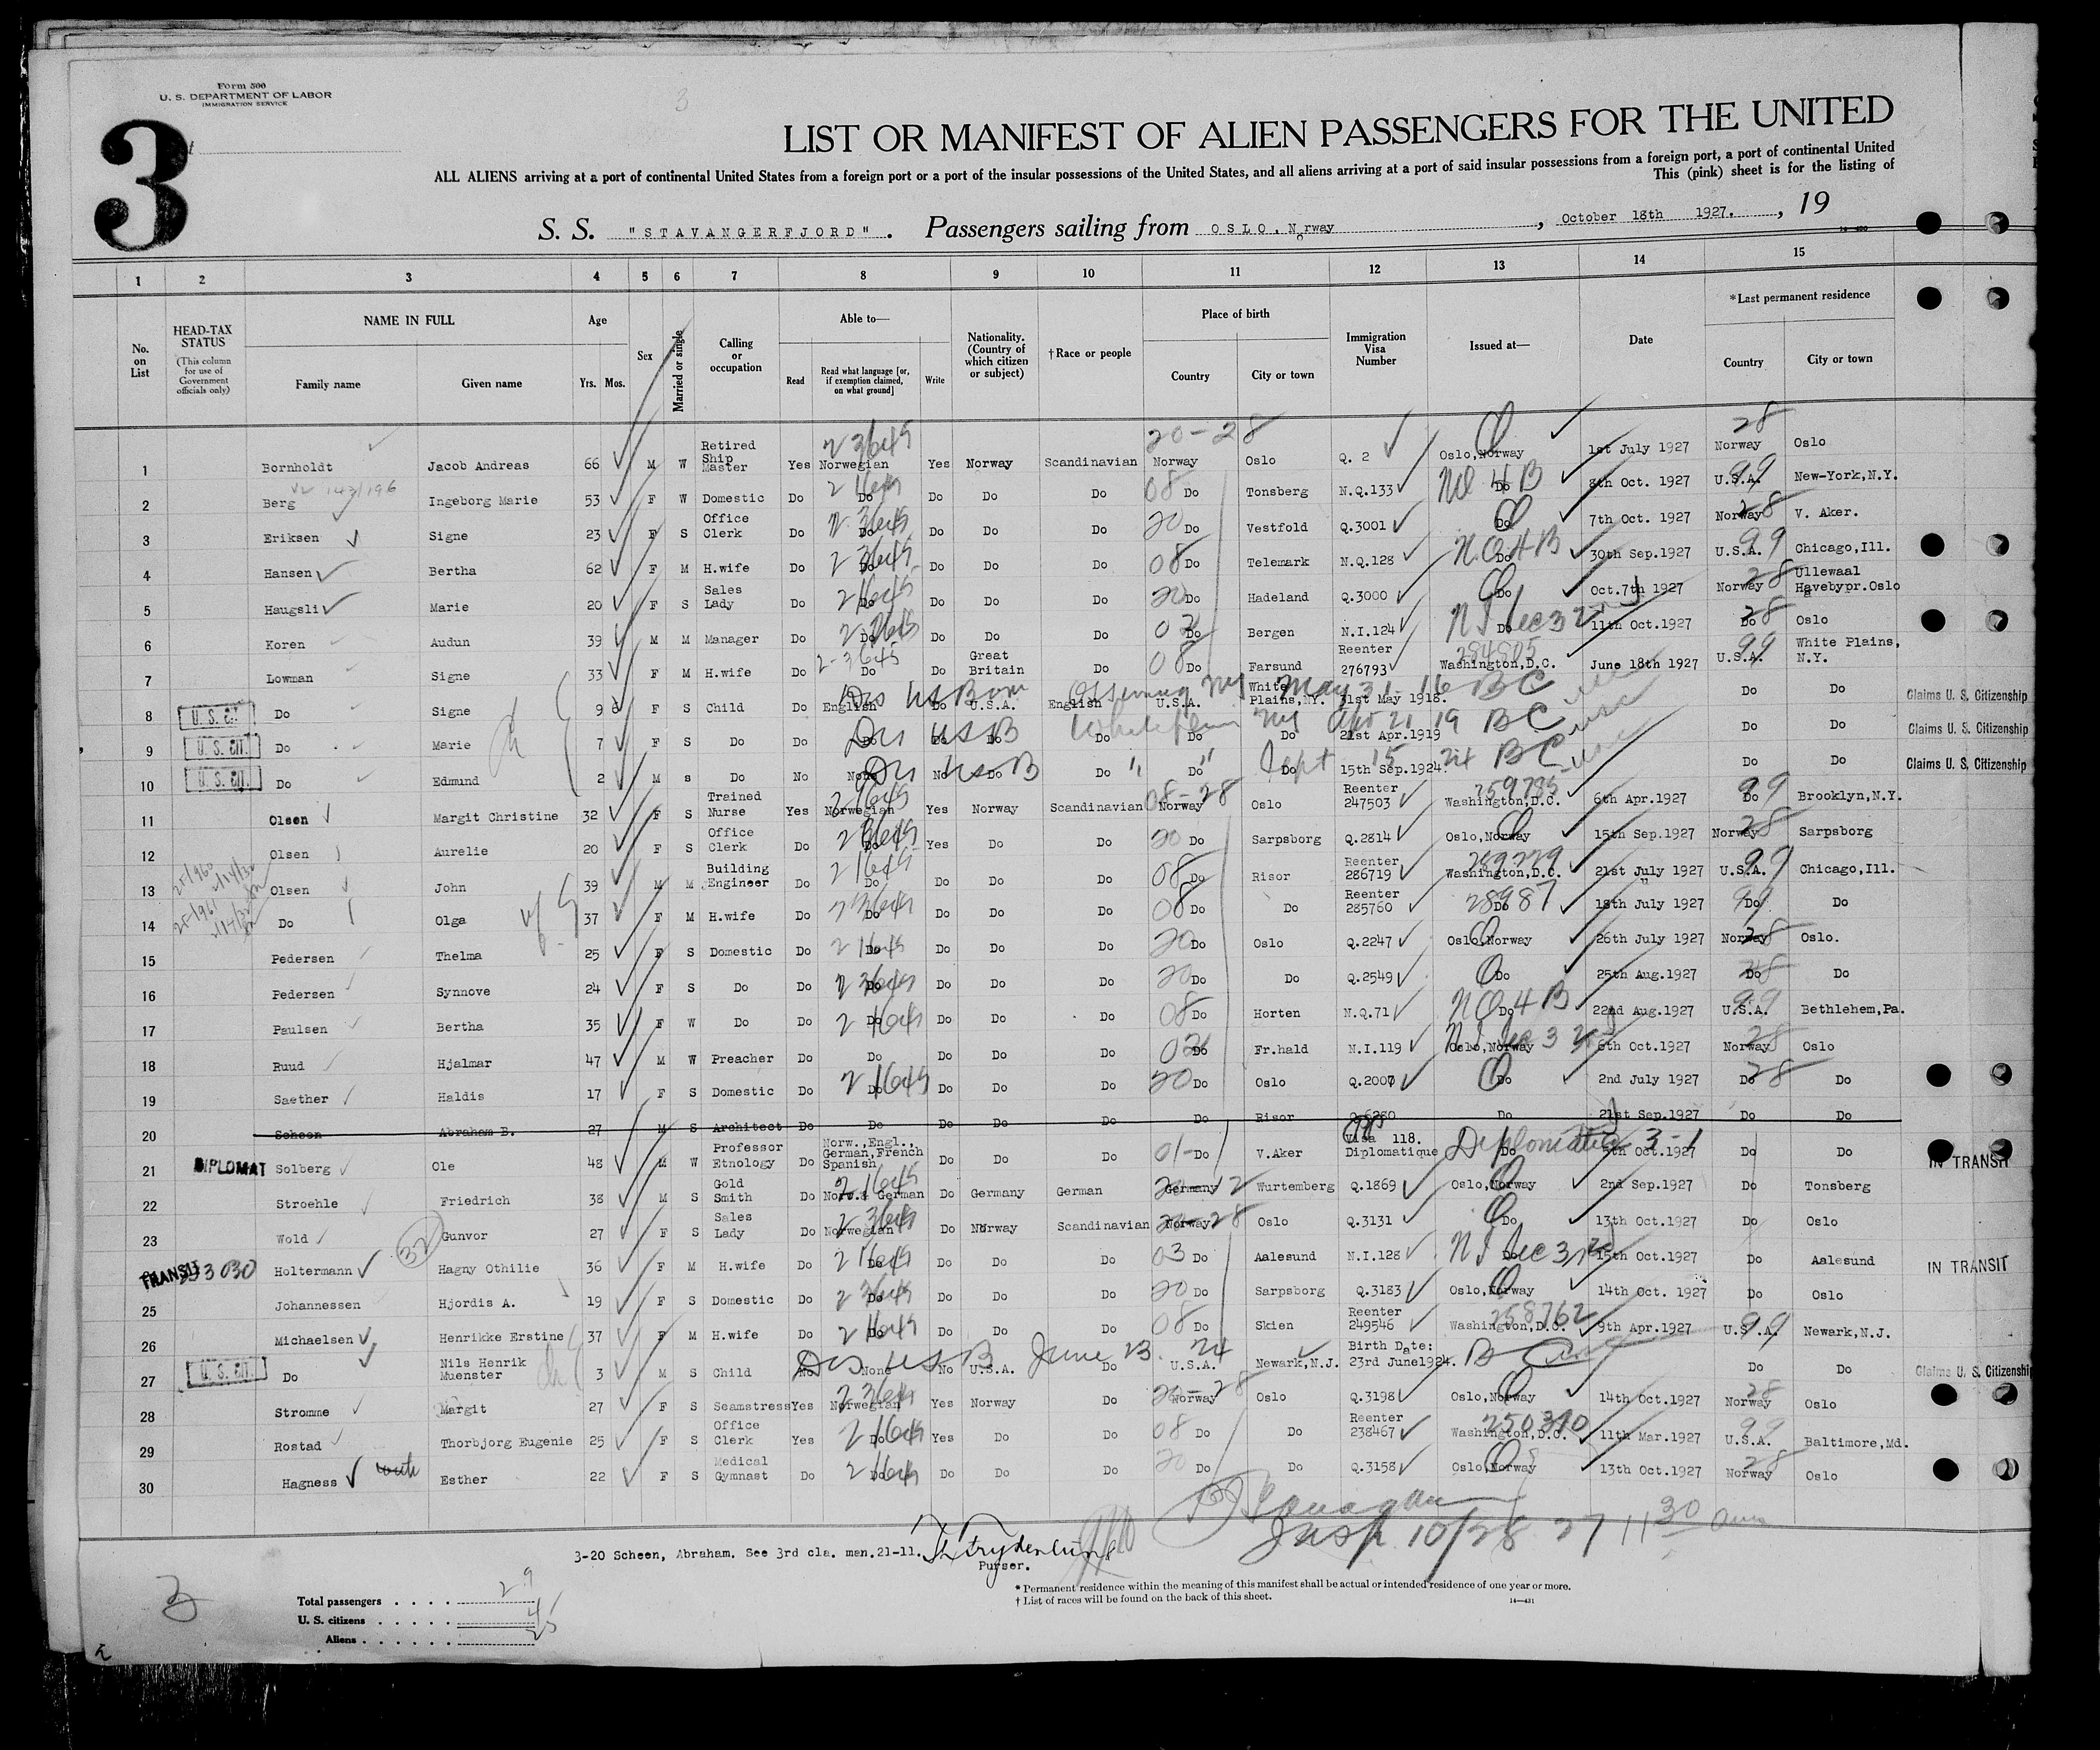 Form 500
U. S. DEPARTMENT OF LABOR
IMMIGRATION SERVICE
3
3
LIST OR MANIFEST OF ALIEN PASSENGERS FOR THE UNITED
ALL ALIENS arriving at a port of continental United States from a foreign port or a port of the insular possessions of the United States, and all aliens arriving at a port of said insular possessions from a foreign port, a port of continental United
This (pink) sheet is for the listing of
S. S. "STAVANGERFJORD". Passengers sailing from OSLO, Norway, October 18th 1927., 19
1 2 3 4 5 6 7 8 9 10 11 12 13 14 15
No. on List
HEAD-TAX STATUS
(This column for use of Government officials only)
NAME IN FULL
Family name Given name
Age
Yrs. Mos.
Sex
Married or single
Calling or occupation
Able to—
Read
Read what language [or, if exemption claimed, on what ground]
Write
Nationality. (Country of which citizen or subject)
†Race or people
Place of birth
Country City or town
Immigration Visa Number
Issued at—
Date
*Last permanent residence
Country City or town
1 Bornholdt Jacob Andreas 66 M W Retired Ship Master Yes Norwegian Yes Norway Scandinavian Norway Oslo Q. 2 Oslo,Norway 1st July 1927 Norway Oslo
2 Berg Ingeborg Marie 53 F W Domestic Do Do Do Do Do Do Tonsberg N.Q.133 Do 8th Oct. 1927 U.S.A. New-York,N.Y.
3 Eriksen Signe 23 F S Office Clerk Do Do Do Do Do Do Vestfold Q.3001 Do 7th Oct. 1927 Norway V. Aker.
4 Hansen Bertha 62 F M H.wife Do Do Do Do Do Do Telemark N.Q.128 Do 30th Sep.1927 U.S.A. Chicago,Ill.
5 Haugsli Marie 20 F S Sales Lady Do Do Do Do Do Do Hadeland Q.3000 Do Oct.7th 1927 Norway Ullewaal Havebypr.Oslo
6 Koren Audun 39 M M Manager Do Do Do Do Do Do Bergen N.I.124 Do 11th Oct.1927 Do Oslo
7 Lowman Signe 33 F M H.wife Do Do Do Great Britain Do Do Farsund Reenter 276793 Washington,D.C. June 18th 1927 U.S.A. White Plains, N.Y.
8 U. S. Cit. Do Signe 9 F S Child Do English Do U.S.A. English U.S.A. White Plains,NY. 31st May 1918. Do Do Claims U. S. Citizenship
9 U. S. Cit. Do Marie 7 F S Do Do Do Do Do Do Do Do 21st Apr.1919 Do Do Claims U. S. Citizenship
10 U. S. Cit. Do Edmund 2 M s Do No None No Do Do Do Do 15th Sep.1924. Do Do Claims U. S. Citizenship
11 Olsen Margit Christine 32 F S Trained Nurse Yes Norwegian Yes Norway Scandinavian Norway Oslo Reenter 247503 Washington,D.C. 6th Apr.1927 Do Brooklyn,N.Y.
12 Olsen Aurelie 20 F S Office Clerk Do Do Yes Do Do Do Sarpsborg Q.2814 Oslo,Norway 15th Sep.1927 Norway Sarpsborg
13 Olsen John 39 M M Building Engineer Do Do Do Do Do Do Risor Reenter 286719 Washington,D.C. 21st July 1927 U.S.A. Chicago,Ill.
14 Do Olga 37 F M H.wife Do Do Do Do Do Do Do Reenter 285760 Do 18th July 1927 Do Do
15 Pedersen Thelma 25 F S Domestic Do Do Do Do Do Do Oslo Q.2247 Oslo,Norway 26th July 1927 Norway Oslo.
16 Pedersen Synnove 24 F S Do Do Do Do Do Do Do Do Q.2549 Do 25th Aug.1927 Do Do
17 Paulsen Bertha 35 F W Do Do Do Do Do Do Do Horten N.Q.71 Do 22nd Aug.1927 U.S.A. Bethlehem,Pa.
18 Ruud Hjalmar 47 M W Preacher Do Do Do Do Do Do Fr.hald N.I.119 Oslo,Norway 6th Oct.1927 Norway Oslo
19 Saether Haldis 17 F S Domestic Do Do Do Do Do Do Oslo Q.2007 Do 2nd July 1927 Do Do
20 Scheen Abraham B. 27 M S Architect Do Do Do Do Do Do Risor Q.6280 Do 21st Sep.1927 Do Do
21 DIPLOMAT Solberg Ole 48 M W Professor Etnology Do Norw.,Engl., German,French Spanish Do Do Do Do V.Aker Visa 118. Diplomatique Do 5th Oct.1927 Do Do IN TRANSIT
22 Stroehle Friedrich 38 M S Gold Smith Do Norw.& German Do Germany German Germany Wurtemberg Q.1869 Oslo,Norway 2nd Sep.1927 Do Tonsberg
23 Wold Gunvor 27 F S Sales Lady Do Norwegian Do Norway Scandinavian Norway Oslo Q.3131 Do 13th Oct.1927 Do Oslo
TRANSIT Holtermann Hagny Othilie 36 F M H.wife Do Do Do Do Do Do Aalesund N.I.128 Do 15th Oct.1927 Do Aalesund IN TRANSIT
25 Johannessen Hjordis A. 19 F S Domestic Do Do Do Do Do Do Sarpsborg Q.3183 Oslo,Norway 14th Oct. 1927 Do Oslo
26 Michaelsen Henrikke Erstine 37 F M H.wife Do Do Do Do Do Do Skien Reenter 249546 Washington,D.C. 9th Apr.1927 U.S.A. Newark,N.J.
27 U. S. Cit. Do Nils Henrik Muenster 3 M S Child No None No U.S.A. Do U.S.A. Newark,N.J. Birth Date: 23rd June1924. Do Do Claims U. S. Citizenship
28 Stromme Margit 27 F S Seamstress Yes Norwegian Yes Norway Do Norway Oslo Q.3198 Oslo,Norway 14th Oct.1927 Norway Oslo
29 Rostad Thorbjorg Eugenie 25 F S Office Clerk Yes Do Yes Do Do Do Do Reenter 238467 Washington,D.C. 11th Mar.1927 U.S.A. Baltimore,Md.
30 Hagness Esther 22 F S Medical Gymnast Do Do Do Do Do Do Do Q.3158 Oslo,Norway 13th Oct.1927 Norway Oslo
Insp 10/28 27 11 30 am
3-20 Scheen, Abraham. See 3rd cla. man.21-11.
Purser.
* Permanent residence within the meaning of this manifest shall be actual or intended residence of one year or more.
† List of races will be found on the back of this sheet.
14—431
3
Total passengers . . . . 29
U. S. citizens . . . . . 4
Aliens . . . . . . 25